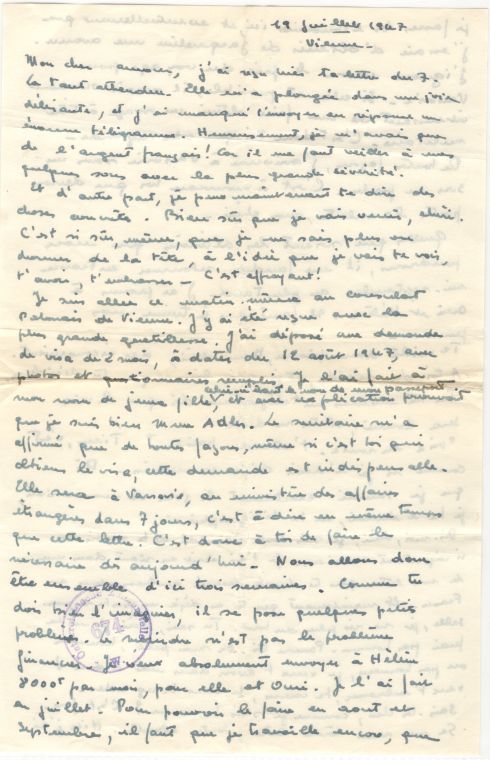 19 juillet 1947
Vienne -
Mon cher amour, j'ai reçu hier ta lettre du 7.
La tant attendue. Elle m'a plongée dans une joie
délirante, et j'ai manqué t'envoyer en réponse un
énorme télégramme. Heureusement, je n'avais que
de l'argent français! Car il me faut veiller à mes
quelques sous avec la plus grande sévérité.
Et d'autre part, je peux maintenant te dire des
choses concrètes. Bien sûr que je vais venir, chéri.
C'est si sûr, même, que je ne sais plus où
donner de la tête, à l'idée que je vais te voir,
t'avoir, t'embrasser - C'est effrayant!
Je suis allée ce matin même au consulat
Polonais de Vienne. J'y ai été reçue avec la
plus grande gentillesse. J'ai déposé une demande
de visa de 2 mois, à dater du 12 août 1947, avec
photos et questionnaires remplis. Je l'ai fait à
mon nom de jeune fille, celui étant le nom de mon passeport
et avec explication prouvant
que je suis bien Mme Adler. Le secrétaire m'a
affirmé que de toutes façons, même si c'est toi qui
obtiens le visa, cette demande est indispensable.
Elle sera à Varsovie, au ministère des affaires
étrangères dans 7 jours, c'est à dire en même temps
que cette lettre. C'est donc à toi de faire le
nécessaire dès aujourd'hui - Nous allons donc
être ensemble d'ici trois semaines. Comme tu
dois bien l'imaginer, il se pose quelques petits
problèmes. Le moindre n'est pas le problème
financier. Je veux absolument envoyer à Hélène
8000f par mois, pour elle et Omi. Je l'ai fait
en juillet. Pour pouvoir le faire en août et
Septembre, il faut que je travaille encore, que
674